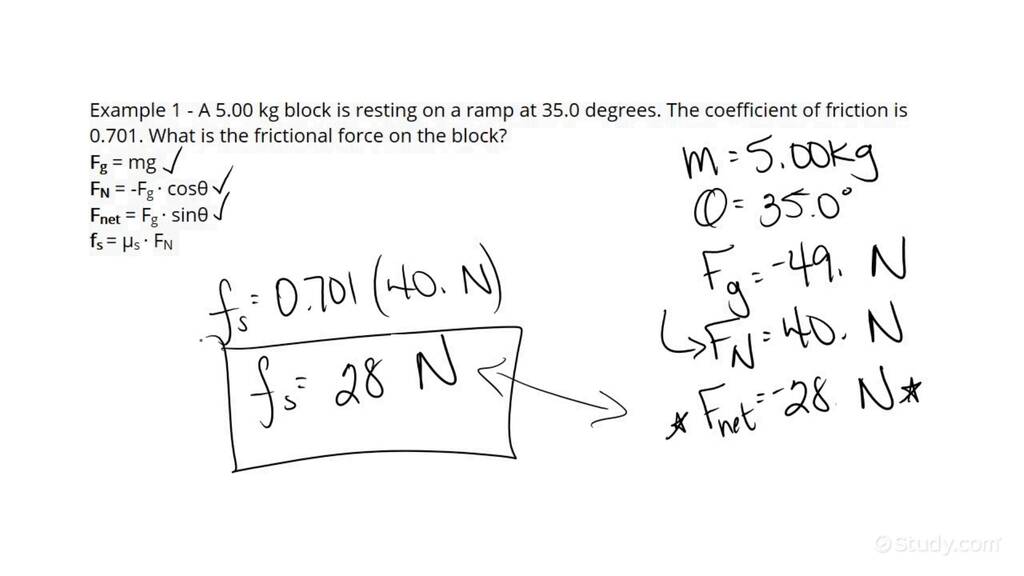 Example 1 - A 5.00 kg block is resting on a ramp at 35.0 degrees. The coefficient of friction is
0.701. What is the frictional force on the block?
Fg = mg ✓
FN = -Fg · cosθ ✓
Fnet = Fg · sinθ ✓
fs = μs · FN
m = 5.00kg
θ = 35.0°
Fg = -49. N
↳ FN = 40. N
* Fnet = -28 N *
fs = 0.701 (40. N)
fs = 28 N
Study.com